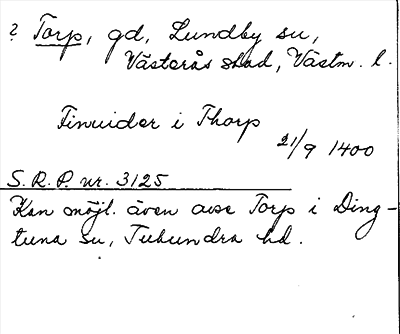 ? Torp, gd, Lundby su,
Västerås stad, Västm. l.
Finuider i Thorp
21/9 1400
S. R. P. nr. 3125
Kan möjl. även avse Torp i Ding-
tuna su, Tuhundra hd.